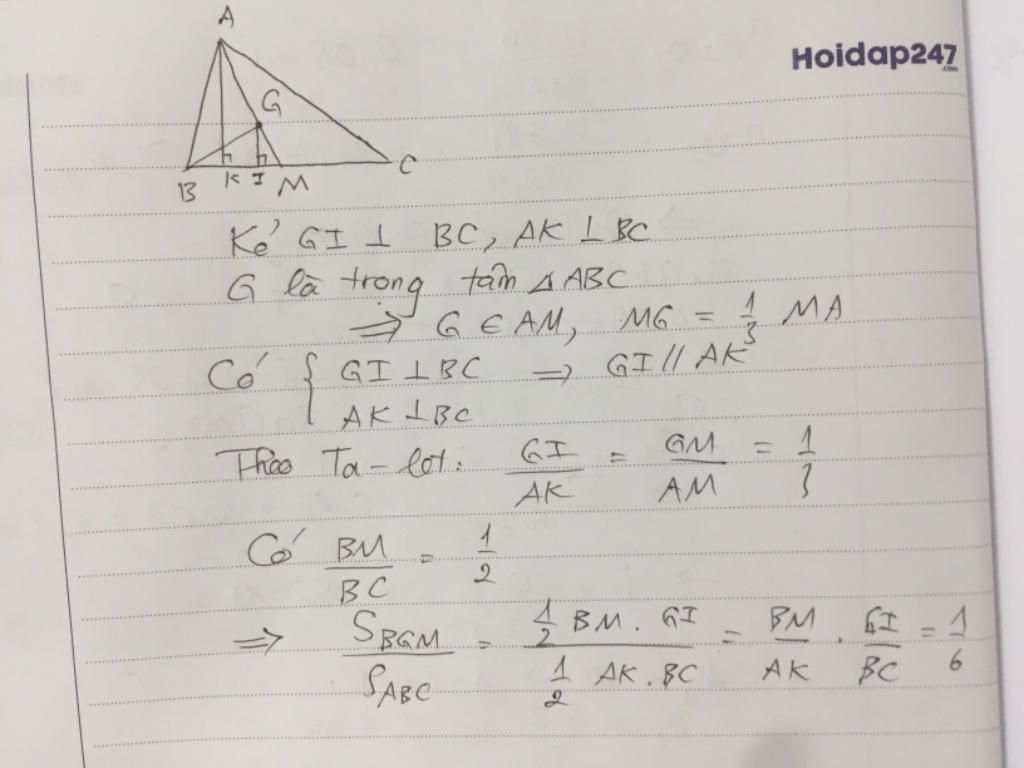 A
Hoidap247
.com
G
B K I M C
Kẻ GI ⊥ BC, AK ⊥ BC
G là trọng tâm △ABC
⇒ G ∈ AM, MG = 1/3 MA
Có { GI ⊥ BC ⇒ GI // AK
AK ⊥ BC
Theo Ta-let: GI/AK = GM/AM = 1/3
Có BM/BC = 1/2
⇒ S_BGM/S_ABC = (1/2 BM . GI)/(1/2 AK . BC) = BM/AK . GI/BC = 1/6